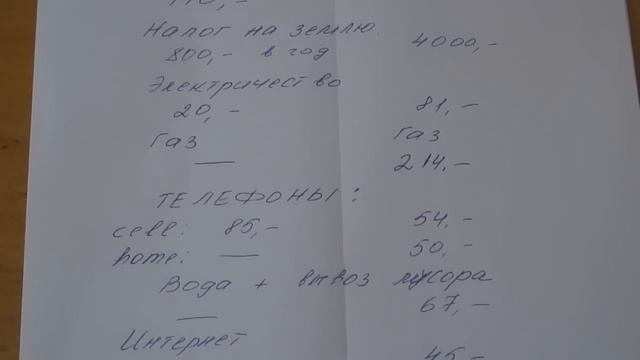 110,-
Налог на землю
800,- в год 4000,-
Электричество
20,- 81,-
Газ Газ
— 214,-
ТЕЛЕФОНЫ:
cell: 85,- 54,-
home: — 50,-
Вода + вывоз мусора
— 67,-
Интернет
45,-